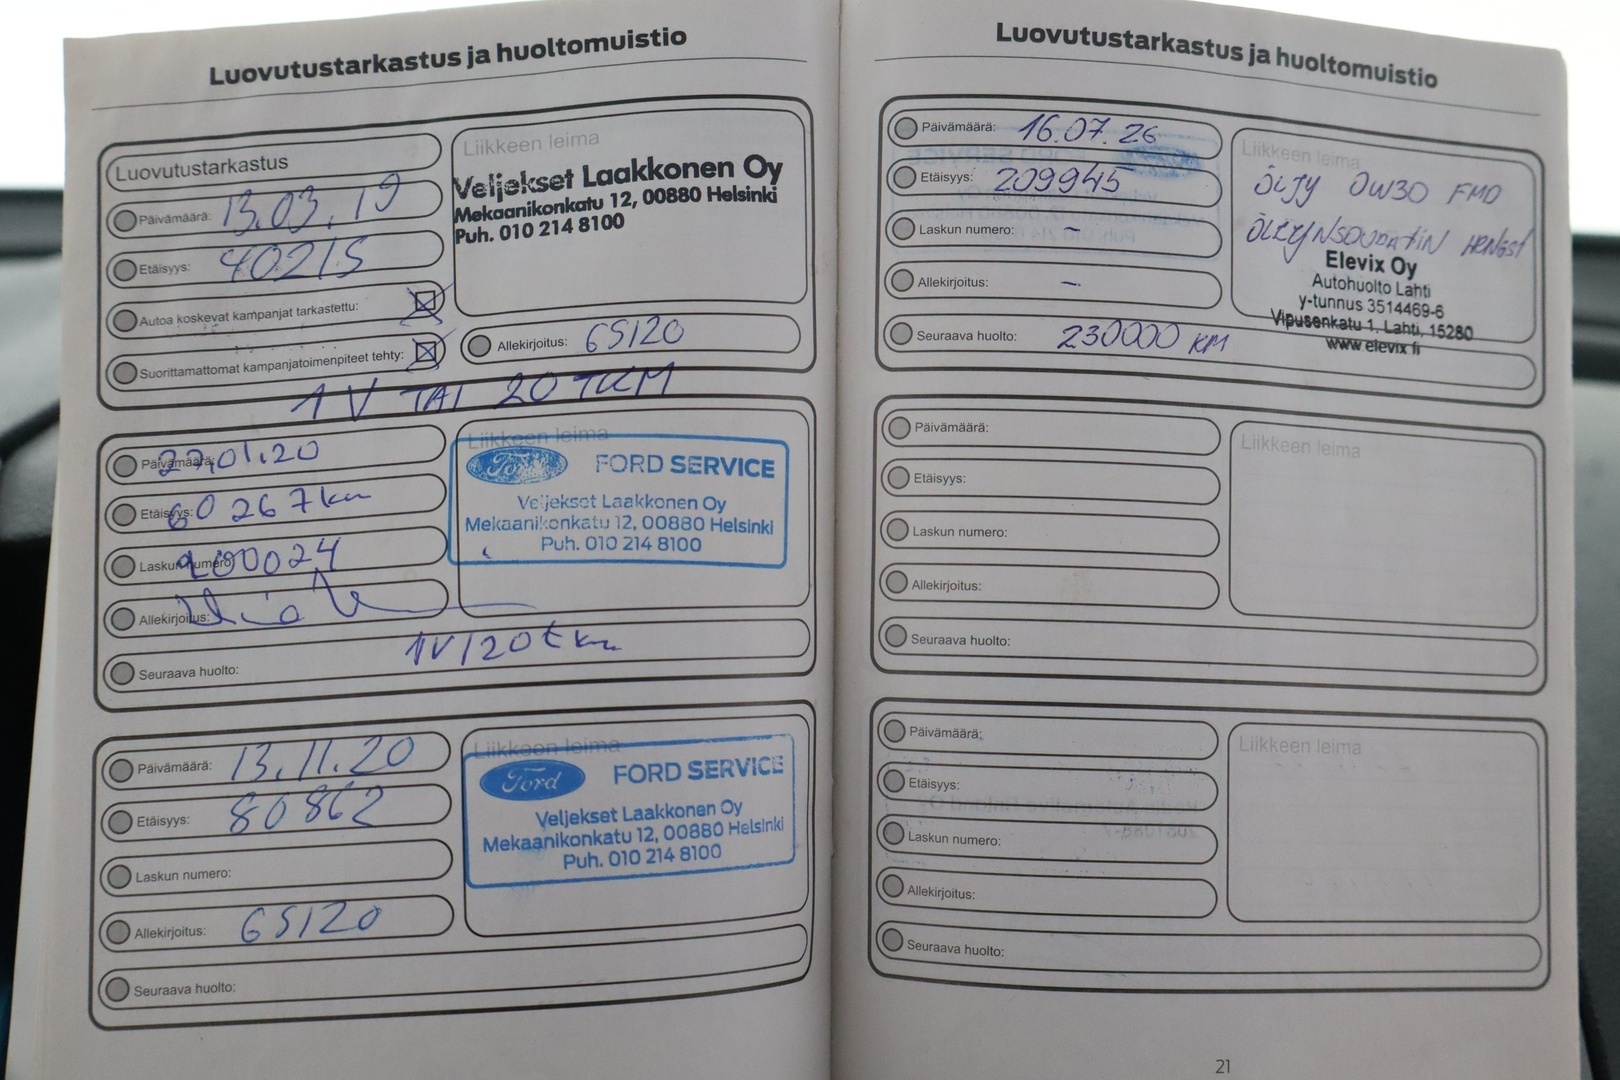 Luovutustarkastus ja huoltomuistio
Luovutustarkastus
Päivämäärä: 13.03.19
Etäisyys: 40215
Autoa koskevat kampanjat tarkastettu:
Suorittamattomat kampanjatoimenpiteet tehty:
Liikkeen leima
Veljekset Laakkonen Oy
Mekaanikonkatu 12, 00880 Helsinki
Puh. 010 214 8100
Allekirjoitus: GS120
1 V TAI 20 TKM
Päivämäärä: 27.01.20
Etäisyys: 60 267 km
Laskun numero:
Allekirjoitus:
Liikkeen leima
Ford FORD SERVICE
Veljekset Laakkonen Oy
Mekaanikonkatu 12, 00880 Helsinki
Puh. 010 214 8100
Seuraava huolto: 1V/20tkm
Päivämäärä: 13.11.20
Etäisyys: 80862
Laskun numero:
Allekirjoitus: GS120
Liikkeen leima
Ford FORD SERVICE
Veljekset Laakkonen Oy
Mekaanikonkatu 12, 00880 Helsinki
Puh. 010 214 8100
Seuraava huolto:
Luovutustarkastus ja huoltomuistio
Päivämäärä: 16.07.26
Etäisyys: 209945
Laskun numero: -
Allekirjoitus: -
Seuraava huolto: 230000 KM
Liikkeen leima
ÖLJY 0W30 FMD
HENGST
Elevix Oy
Autohuolto Lahti
y-tunnus 3514469-6
Vipusenkatu 1, Lahti, 15280
www elevix fi
Päivämäärä:
Etäisyys:
Laskun numero:
Allekirjoitus:
Liikkeen leima
Seuraava huolto:
Päivämäärä:
Etäisyys:
Laskun numero:
Allekirjoitus:
Liikkeen leima
Seuraava huolto:
21